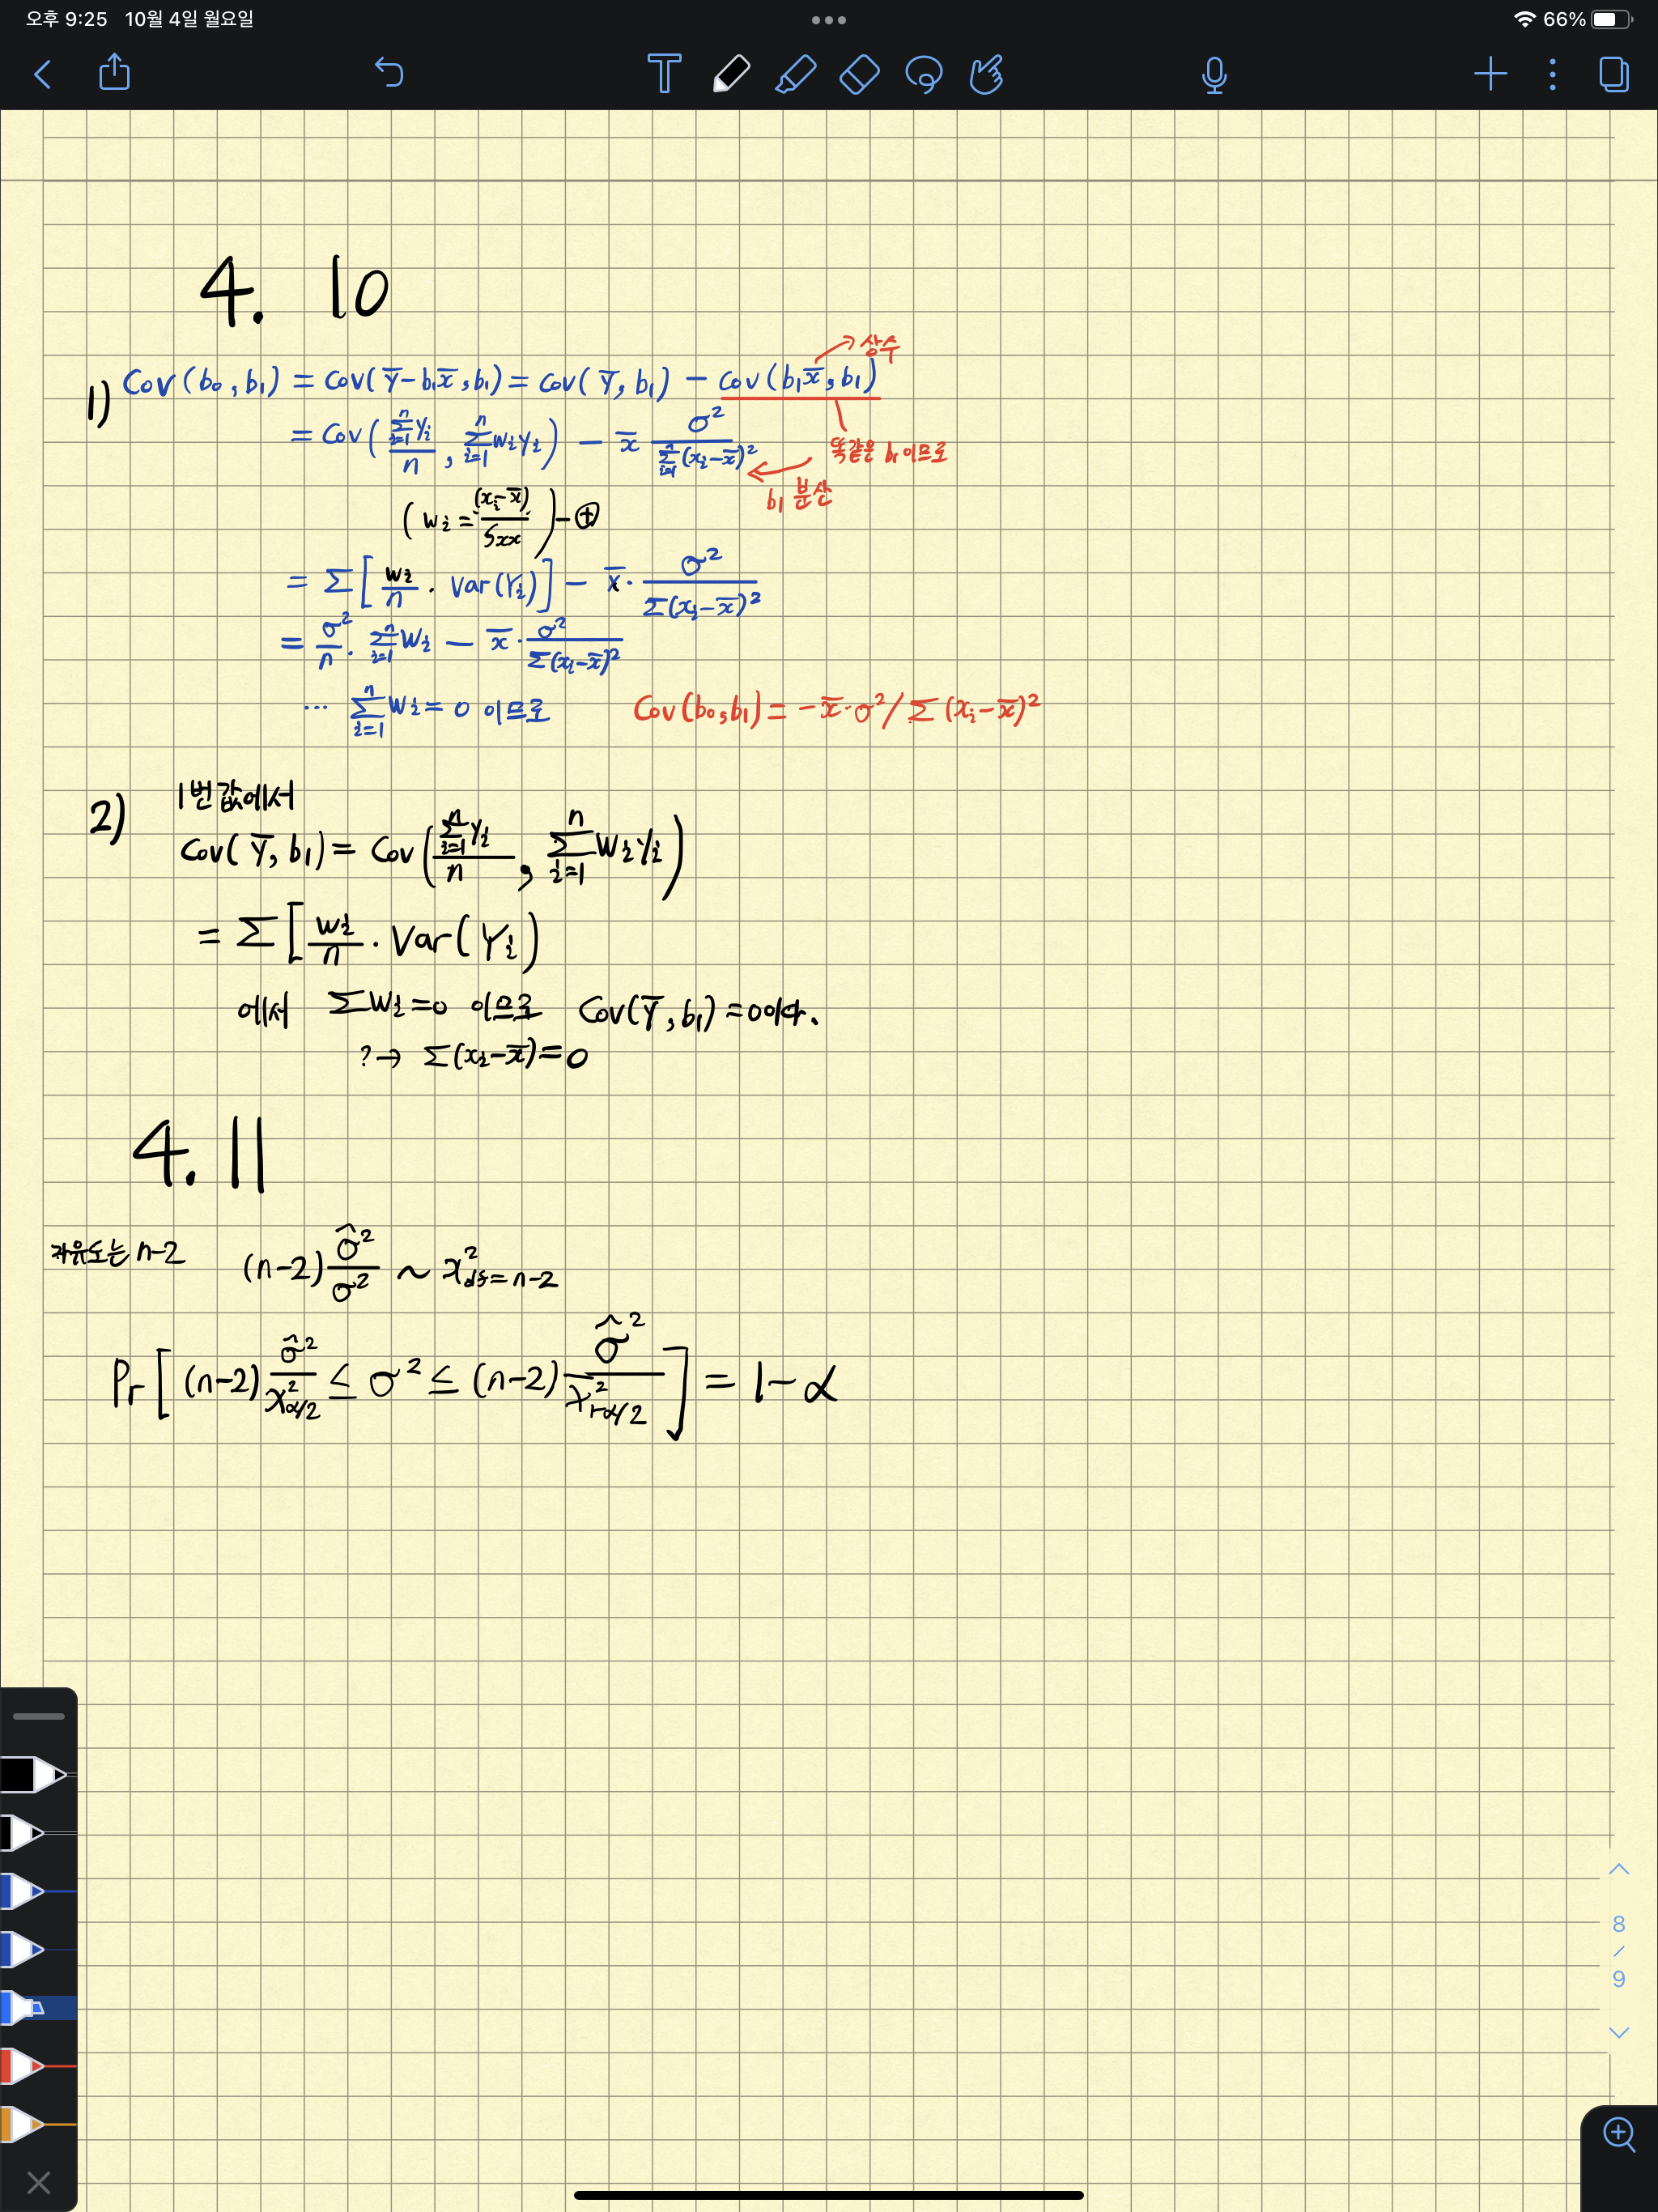 오후 9:25 10월 4일 월요일 66%
4. 10
→ 상수
1) Cov(b₀, b₁) = Cov(Ȳ-b₁x̄, b₁) = Cov(Ȳ, b₁) - Cov(b₁x̄, b₁)
= Cov( (Σⁿᵢ₌₁ Yᵢ)/n , Σⁿᵢ₌₁ wᵢyᵢ ) - x̄ σ²/Σⁿᵢ₌₁(xᵢ-x̄)²
똑같은 b₁이므로
← b₁ 분산
( wᵢ = (xᵢ-x̄)/Sxx ) - ⊕
= Σ[ wᵢ/n · Var(Yᵢ) ] - x̄ · σ²/Σ(xᵢ-x̄)²
= σ²/n · Σⁿᵢ₌₁ Wᵢ - x̄ · σ²/Σ(xᵢ-x̄)²
… Σⁿᵢ₌₁ Wᵢ = 0 이므로 Cov(b₀,b₁) = -x̄·σ²/Σ(xᵢ-x̄)²
2) 1번값에서
Cov(Ȳ, b₁) = Cov( (Σⁿᵢ₌₁ Yᵢ)/n , Σⁿᵢ₌₁ Wᵢyᵢ )
= Σ[ wᵢ/n · Var(Yᵢ)
에서 ΣWᵢ=0 이므로 Cov(Ȳ, b₁) = 0이다.
? → Σ(xᵢ-x̄)=0
4. 11
자유도는 n-2 (n-2) σ̂²/σ² ~ x²df=n-2
Pr[ (n-2) σ̂²/χ²α/2 ≤ σ² ≤ (n-2) σ̂²/χ²1-α/2 ] = 1-α
8
/
9